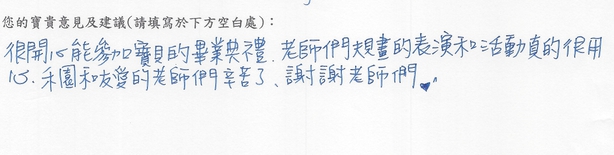 您的寶貴意見及建議(請填寫於下方空白處)：
很開心能參加寶貝的畢業典禮．老師們規畫的表演和活動真的很用
心．禾園和友愛的老師們辛苦了、謝謝老師們